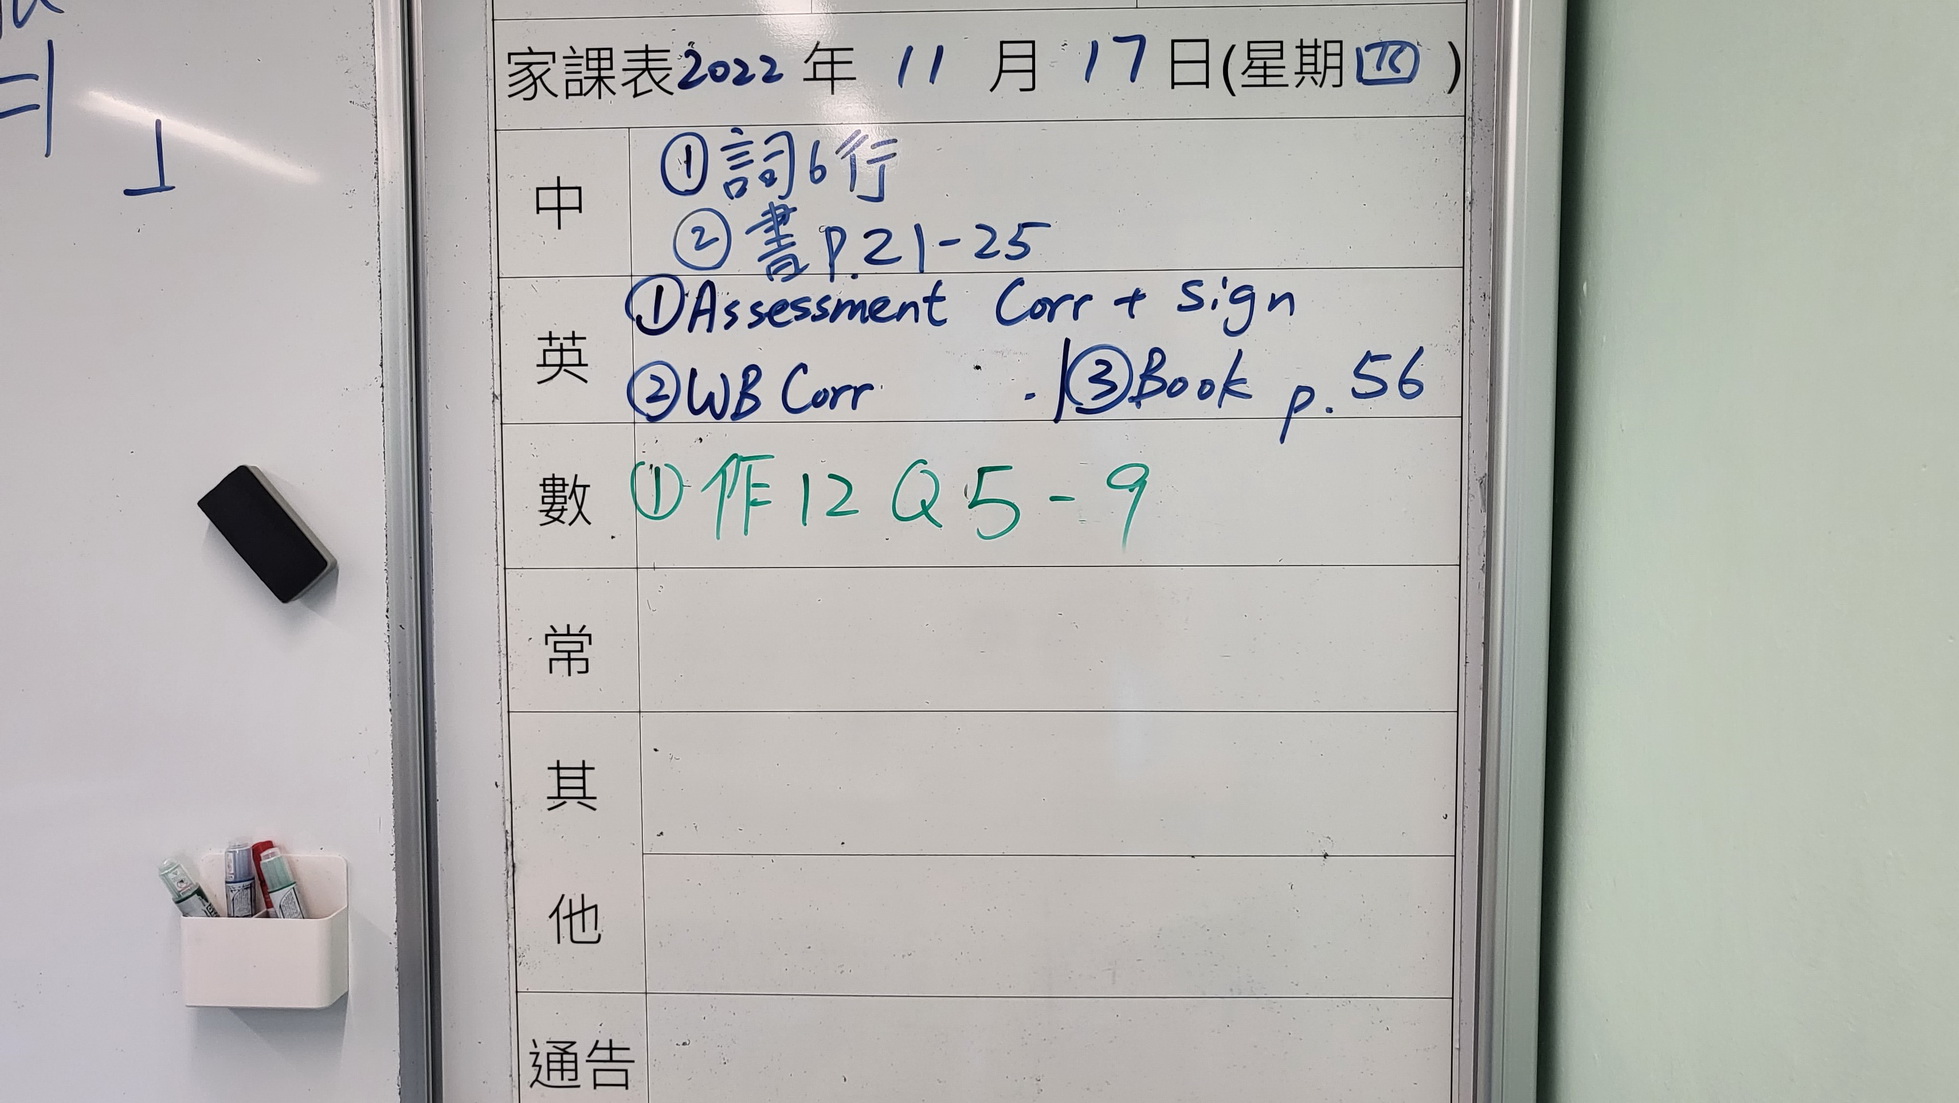 家課表2022年 11 月 17日(星期四)
中
①詞6行
②書p.21-25
英
①Assessment Corr + Sign
②WB Corr ③Book p. 56
數
①作12 Q5-9
常
其
他
通告